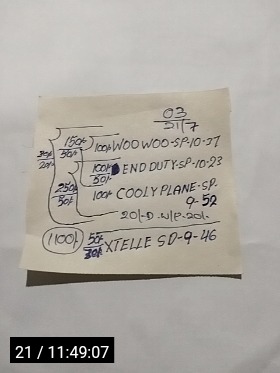 03
31/7
150/- 100/- WOO WOO-SP-10-37
50/-
100/- END DUTY-SP-10-23
50/-
250/- 100/- COOLY PLANE-SP-
50/- 9-52
20/-D-W/P-20/-
1100/- 50/- XTELLE SD-9-46
21 / 11:49:07